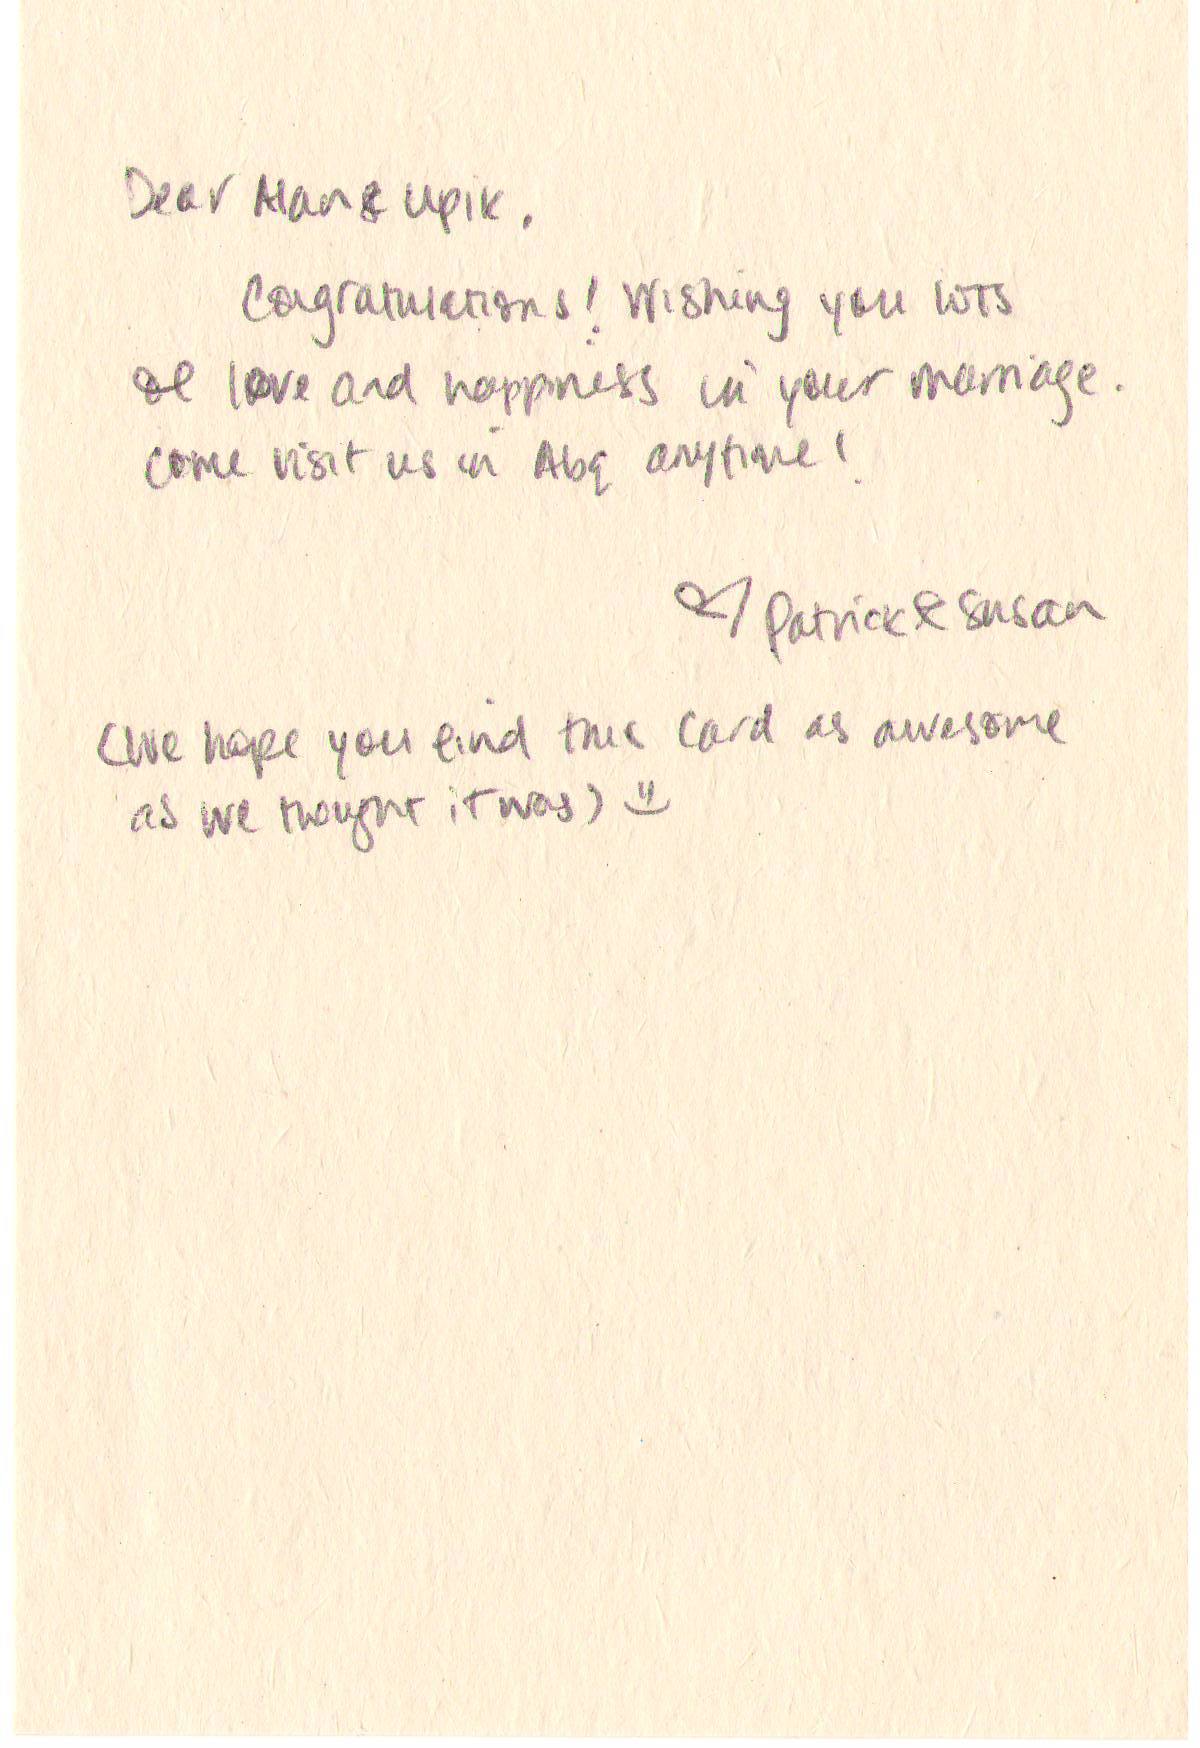 Dear Alan & Upik,
Congratulations! Wishing you lots
of love and happiness in your marriage.
Come visit us in Abq anytime!
♡ Patrick & Susan
(We hope you find this card as awesome
as we thought it was) :)